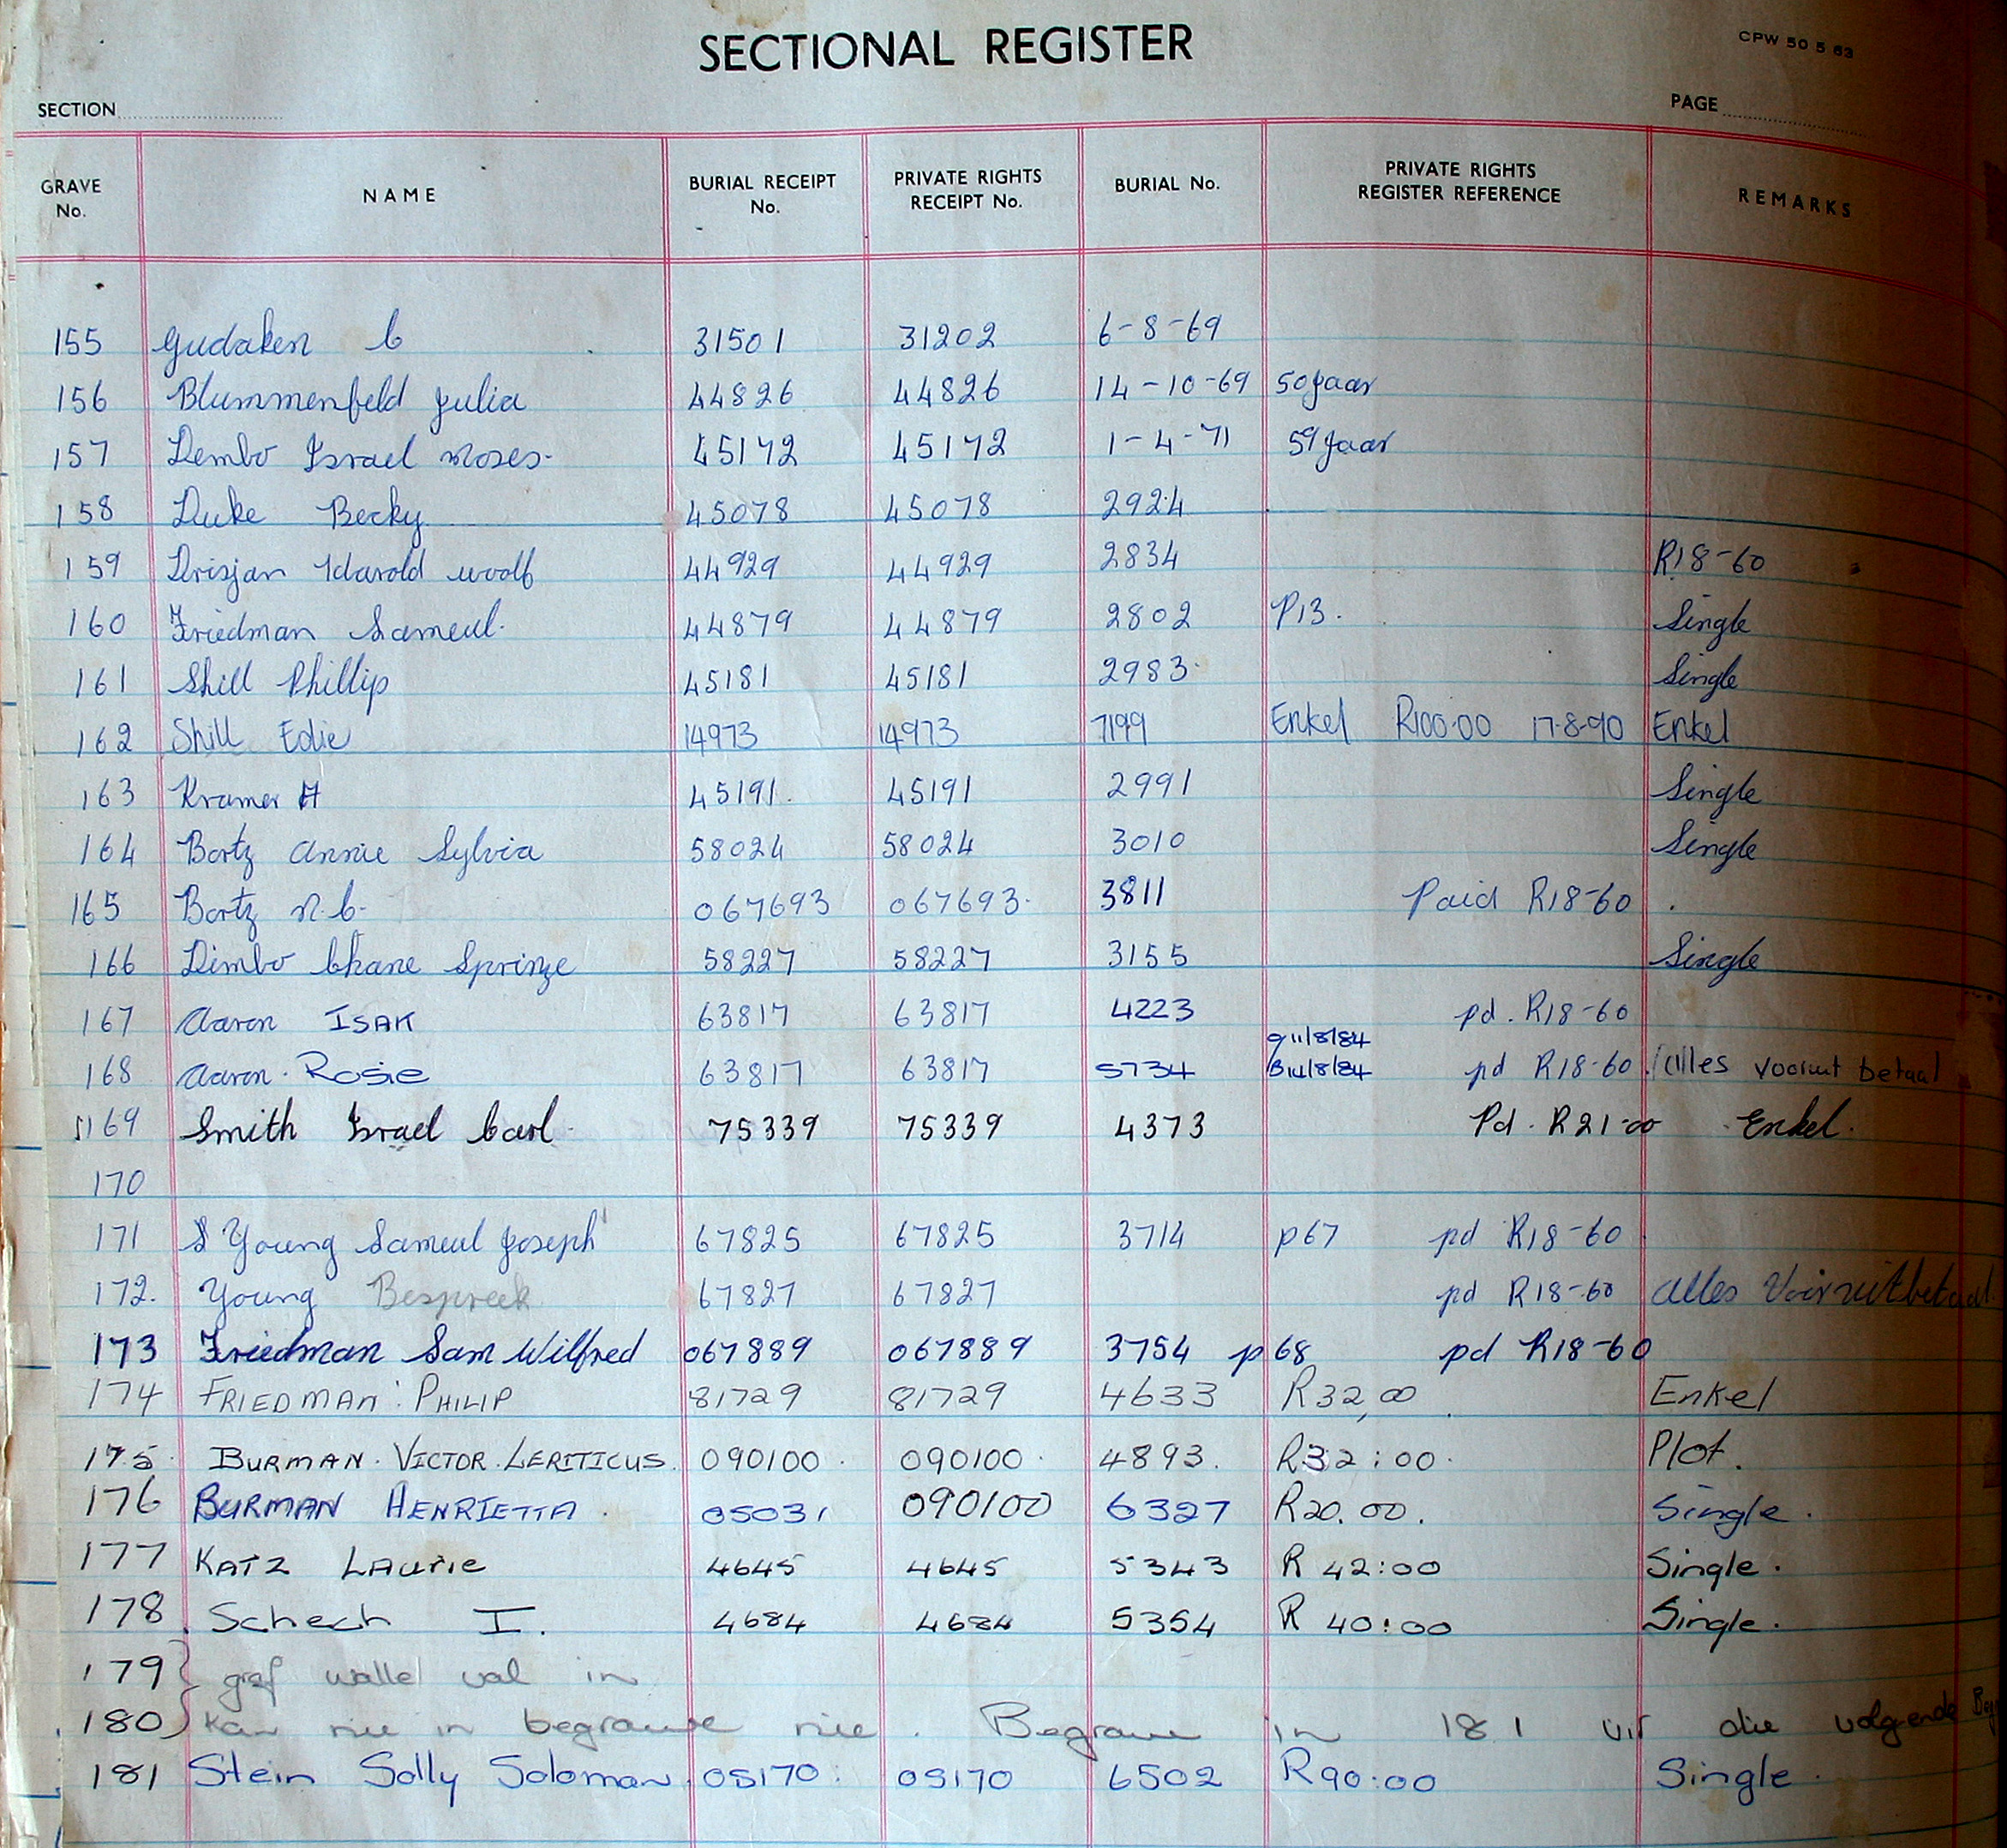 SECTIONAL REGISTER
CPW 50 5 63
SECTION
PAGE
GRAVE No. NAME BURIAL RECEIPT No. PRIVATE RIGHTS RECEIPT No. BURIAL No. PRIVATE RIGHTS REGISTER REFERENCE REMARKS
155 Gudaken C 31501 31202 6-8-69
156 Blummenfeld Julia 44826 44826 14-10-69 50 Jaar
157 Dembo Israel Moses 45172 45172 1-4-71 59 Jaar
158 Duke Becky 45078 45078 2924
159 Drisjan Harold Woolf 44929 44929 2834 R18-60
160 Friedman Sameul 44879 44879 2802 P13. Single
161 Shill Phillip 45181 45181 2983 Single
162 Shill Edie 14973 14973 7199 Enkel R100.00 17-8-90 Enkel
163 Kramer H 45191 45191 2991 Single
164 Bortz Annie Sylvia 58024 58024 3010 Single
165 Bortz N.C. 067693 067693 3811 Paid R18-60
166 Dimbo Chane Sprinze 58227 58227 3155 Single
167 Aaron ISAK 63817 63817 4223 pd. R18-60
168 Aaron Rosie 63817 63817 5734 11/8/84 B14/8/84 pd R18-60 Alles vooruit betaal
169 Smith Israel Carl 75339 75339 4373 Pd. R21-00 Enkel.
170
171 Young Sameul Joseph 67825 67825 3714 p67 pd R18-60
172. Young Bespreek 67827 67827 pd R18-60 Alles Vooruitbetaal
173 Friedman Sam Wilfred 067889 067889 3754 p68 pd R18-60
174 FRIEDMAN PHILIP 81729 81729 4633 R32,00 Enkel
175 BURMAN. VICTOR. LERITICUS. 090100 090100 4893. R32:00. Plot.
176 BURMAN HENRIETTA 05031 090100 6327 R20.00. Single.
177 KATZ LAURIE 4645 4645 5343 R 42:00 Single.
178 Schech I. 4684 4684 5354 R 40:00 Single.
179 graf walle val in
180 kan nie in begrawe nie. Begrawe in 181 vir die volgende
181 Stein Solly Soloman 05170 05170 6502 R90:00 Single.